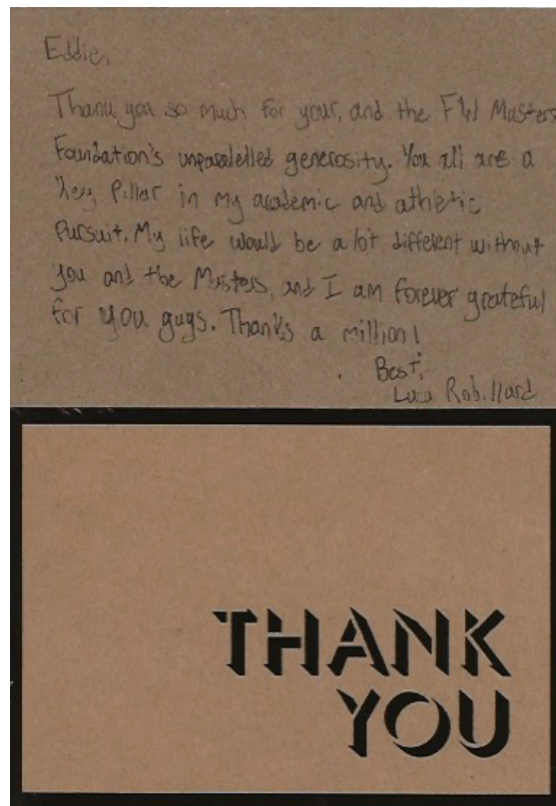 Eddie,
Thank you so much for your, and the FW Masters
Foundation's unparalelled generosity. You all are a
key Pillar in my academic and athletic
Pursuit. My life would be a lot different without
you and the Masters, and I am forever grateful
for you guys. Thanks a million!
Best,
Luca Robillard
THANK
YOU